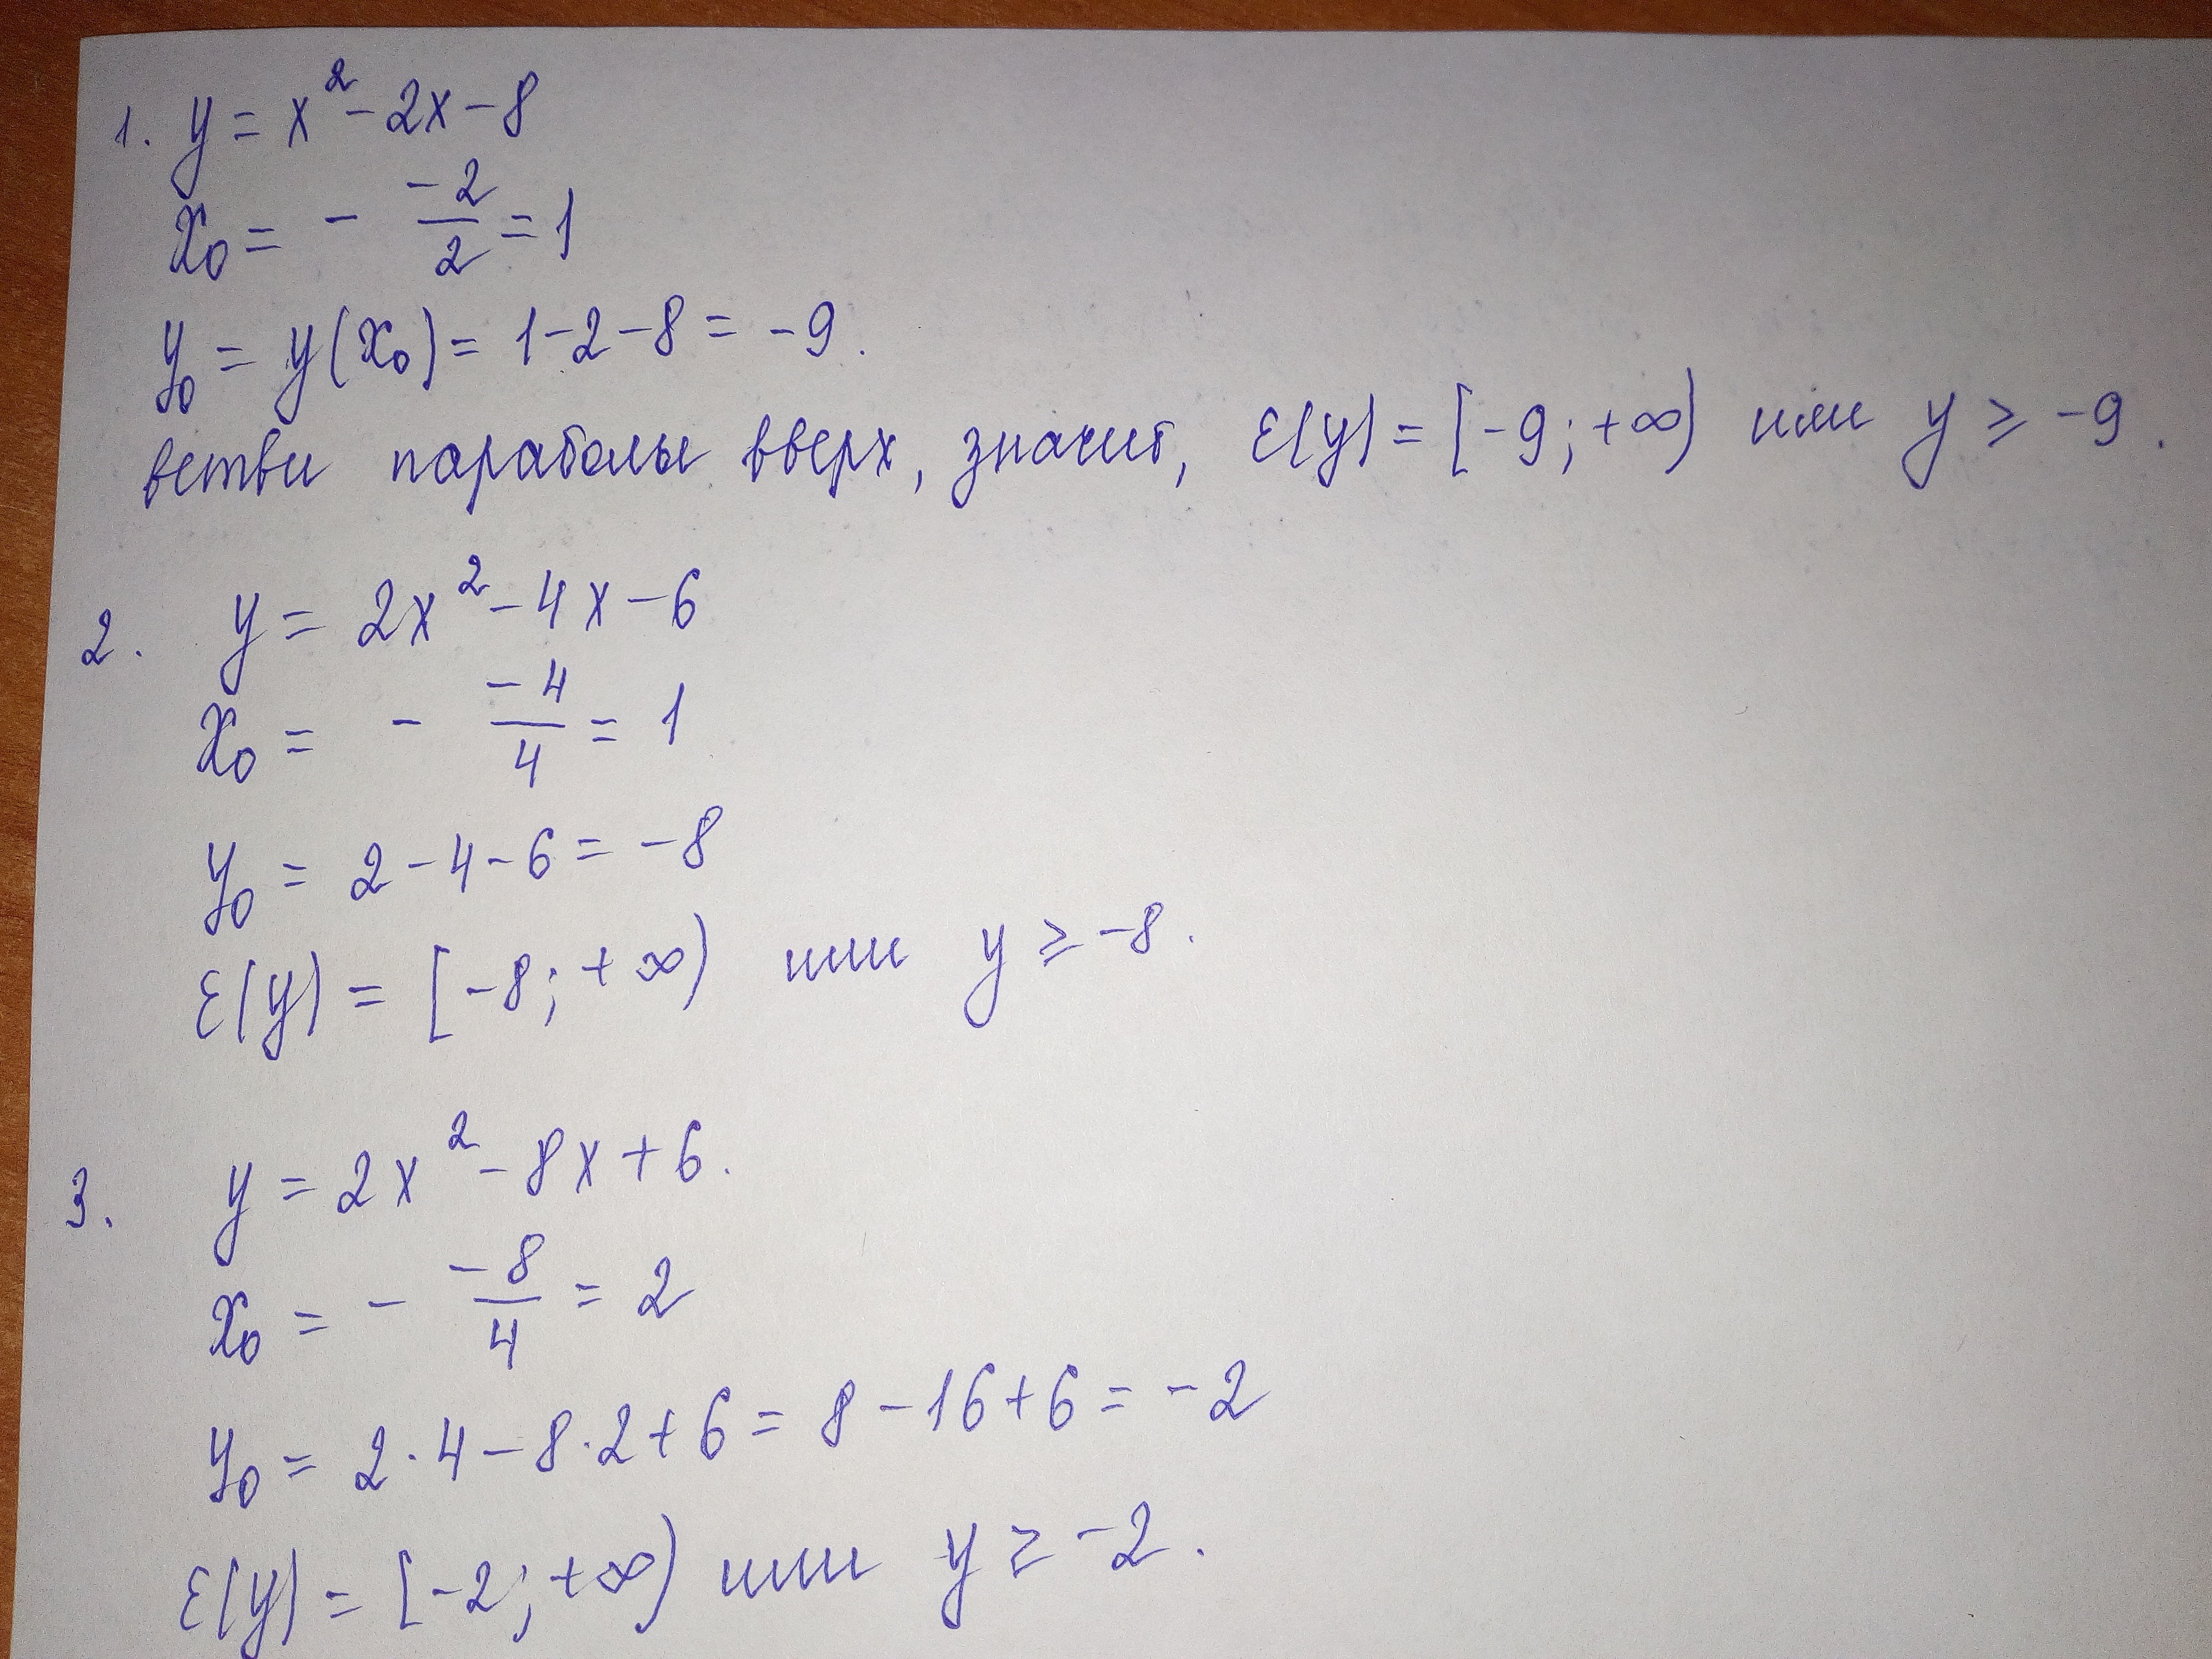 1. y = x² - 2x - 8
x₀ = - -2/2 = 1
y₀ = y(x₀) = 1 - 2 - 8 = -9.
ветви параболы вверх, значит, E(y) = [-9; +∞) или y ≥ -9.
2. y = 2x² - 4x - 6
x₀ = - -4/4 = 1
y₀ = 2 - 4 - 6 = -8
E(y) = [-8; +∞) или y ≥ -8.
3. y = 2x² - 8x + 6.
x₀ = - -8/4 = 2
y₀ = 2·4 - 8·2 + 6 = 8 - 16 + 6 = -2
E(y) = [-2; +∞) или y ≥ -2.